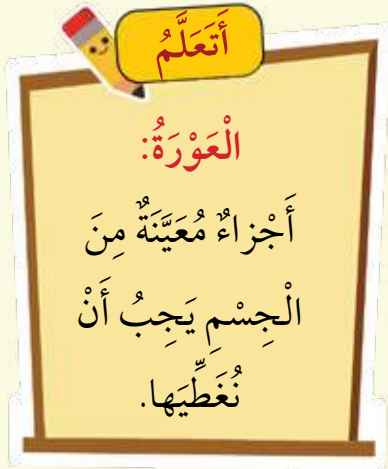 أَتَعَلَّمُ
الْعَوْرَةُ:
أَجْزاءٌ مُعَيَّنَةٌ مِنَ
الْجِسْمِ يَجِبُ أَنْ
نُغَطِّيَها.